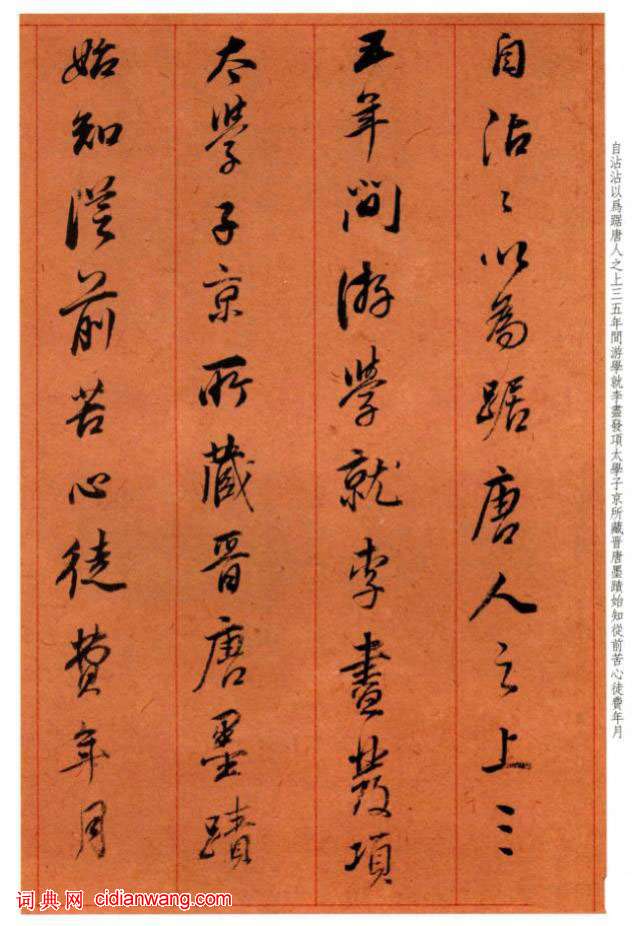 自沾〻以為踞唐人之上三
五年间游學就李盡發項
太學子京所藏晉唐墨蹟
始知從前苦心徒費年月
自沾沾以爲踞唐人之上三五年間游學就李盡發項太學子京所藏晉唐墨蹟始知從前苦心徒費年月
词典网 cidianwang.com